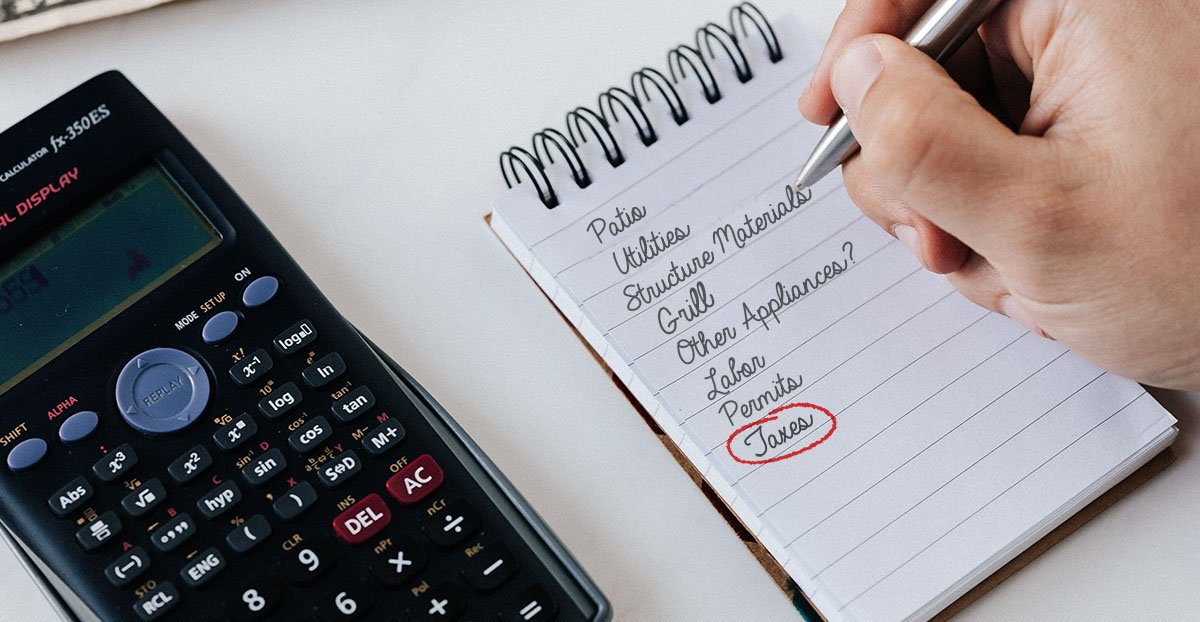 CALCULATOR fx-350ES
AL DISPLAY
ON
MODE SETUP
REPLAY
SHIFT
ALPHA
x! x⁻¹
log
10ˣ log
eˣ ln
x³
x²
cos⁻¹ cos
tan⁻¹ tan
Abs
hyp
sin⁻¹ D sin
S⇔D
M- M M+
A (−)
B °’”
C
ENG
% (
X )
INS DEL
OFF AC
STO RCL
CLR 9
nPr ×
nCr ÷
8
6
Pol +
Rec −
=
Patio
Utilities
Structure Materials
Grill
Other Appliances?
Labor
Permits
Taxes